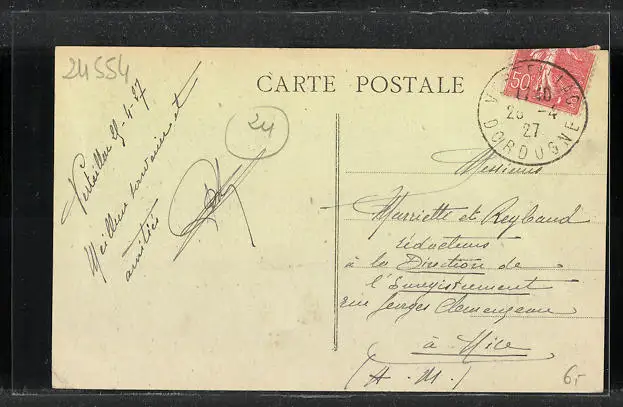 24554
CARTE POSTALE
24
50c
VERTEILLAC
17 30
25 -4
27
DORDOGNE
Verteillac 25-4-27
Meilleurs souvenirs et
amitiés
Messieurs
Marriette et Reybaud
rédacteurs
à la Direction de
l'Enregistrement
rue Georges Clemenceau
à Nice
(A. M.)
6,-